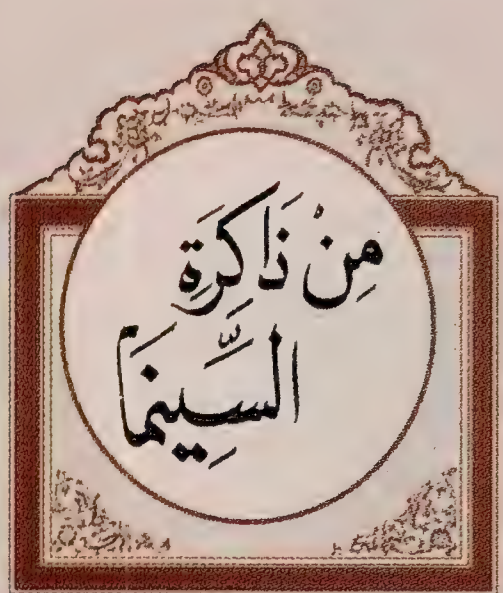 مِنْ ذَاكِرَةِ
السِّينَمَا